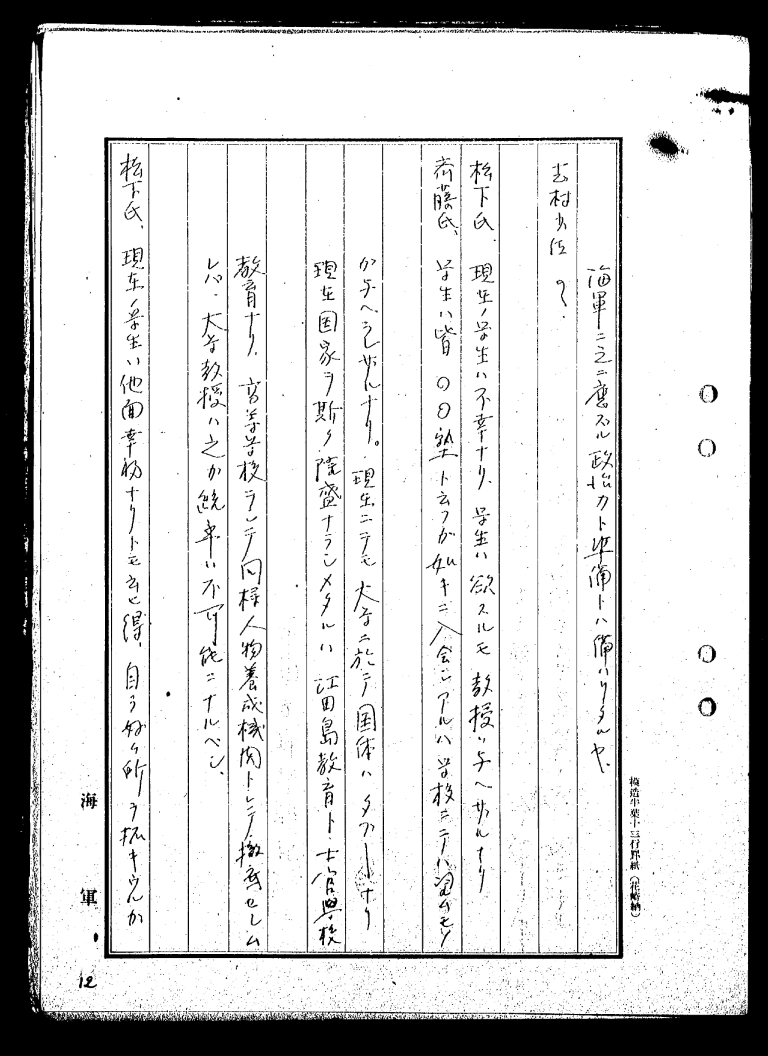 海軍ニ之ニ應ズル政治力ト準備トハ備ハリタルヤ、
吉村少佐 ？.
松下氏、現在ノ学生ハ不幸ナリ、学生ハ欲スルモ教授ハ与ヘザルナリ
斎藤氏、学生ハ皆〇〇塾ト云フが如キニ入会シアルハ学校ニテハ望ムモノ
が与ヘラレザルナリ。現在ニテモ大学ニ於テ国体ハタブーナリ
現在国家ヲ斯ク隆盛ナラシメタルハ江田島教育ト士官學校
教育ナリ、高等学校ヲシテ同様人物養成機関トシテ徹底セシム
レバ、大学教授ハ之が統率ハ不可能ニナルベシ、
松下氏、現在ノ学生ハ他面幸福ナリトモ云ヒ得、自ラ好ム所ヲ拓キウルカ
模造半葉十三行罫紙（花崎納）
海軍
12